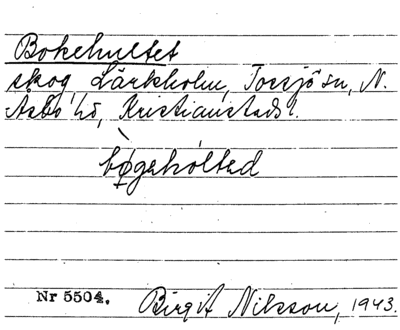 Bokehultet
skog, Lärkholm, Tossjö sn, N.
Åsbo hd, Kristianstads l.
bøgehòlted
Nr 5504. Birgit Nilsson, 1943.